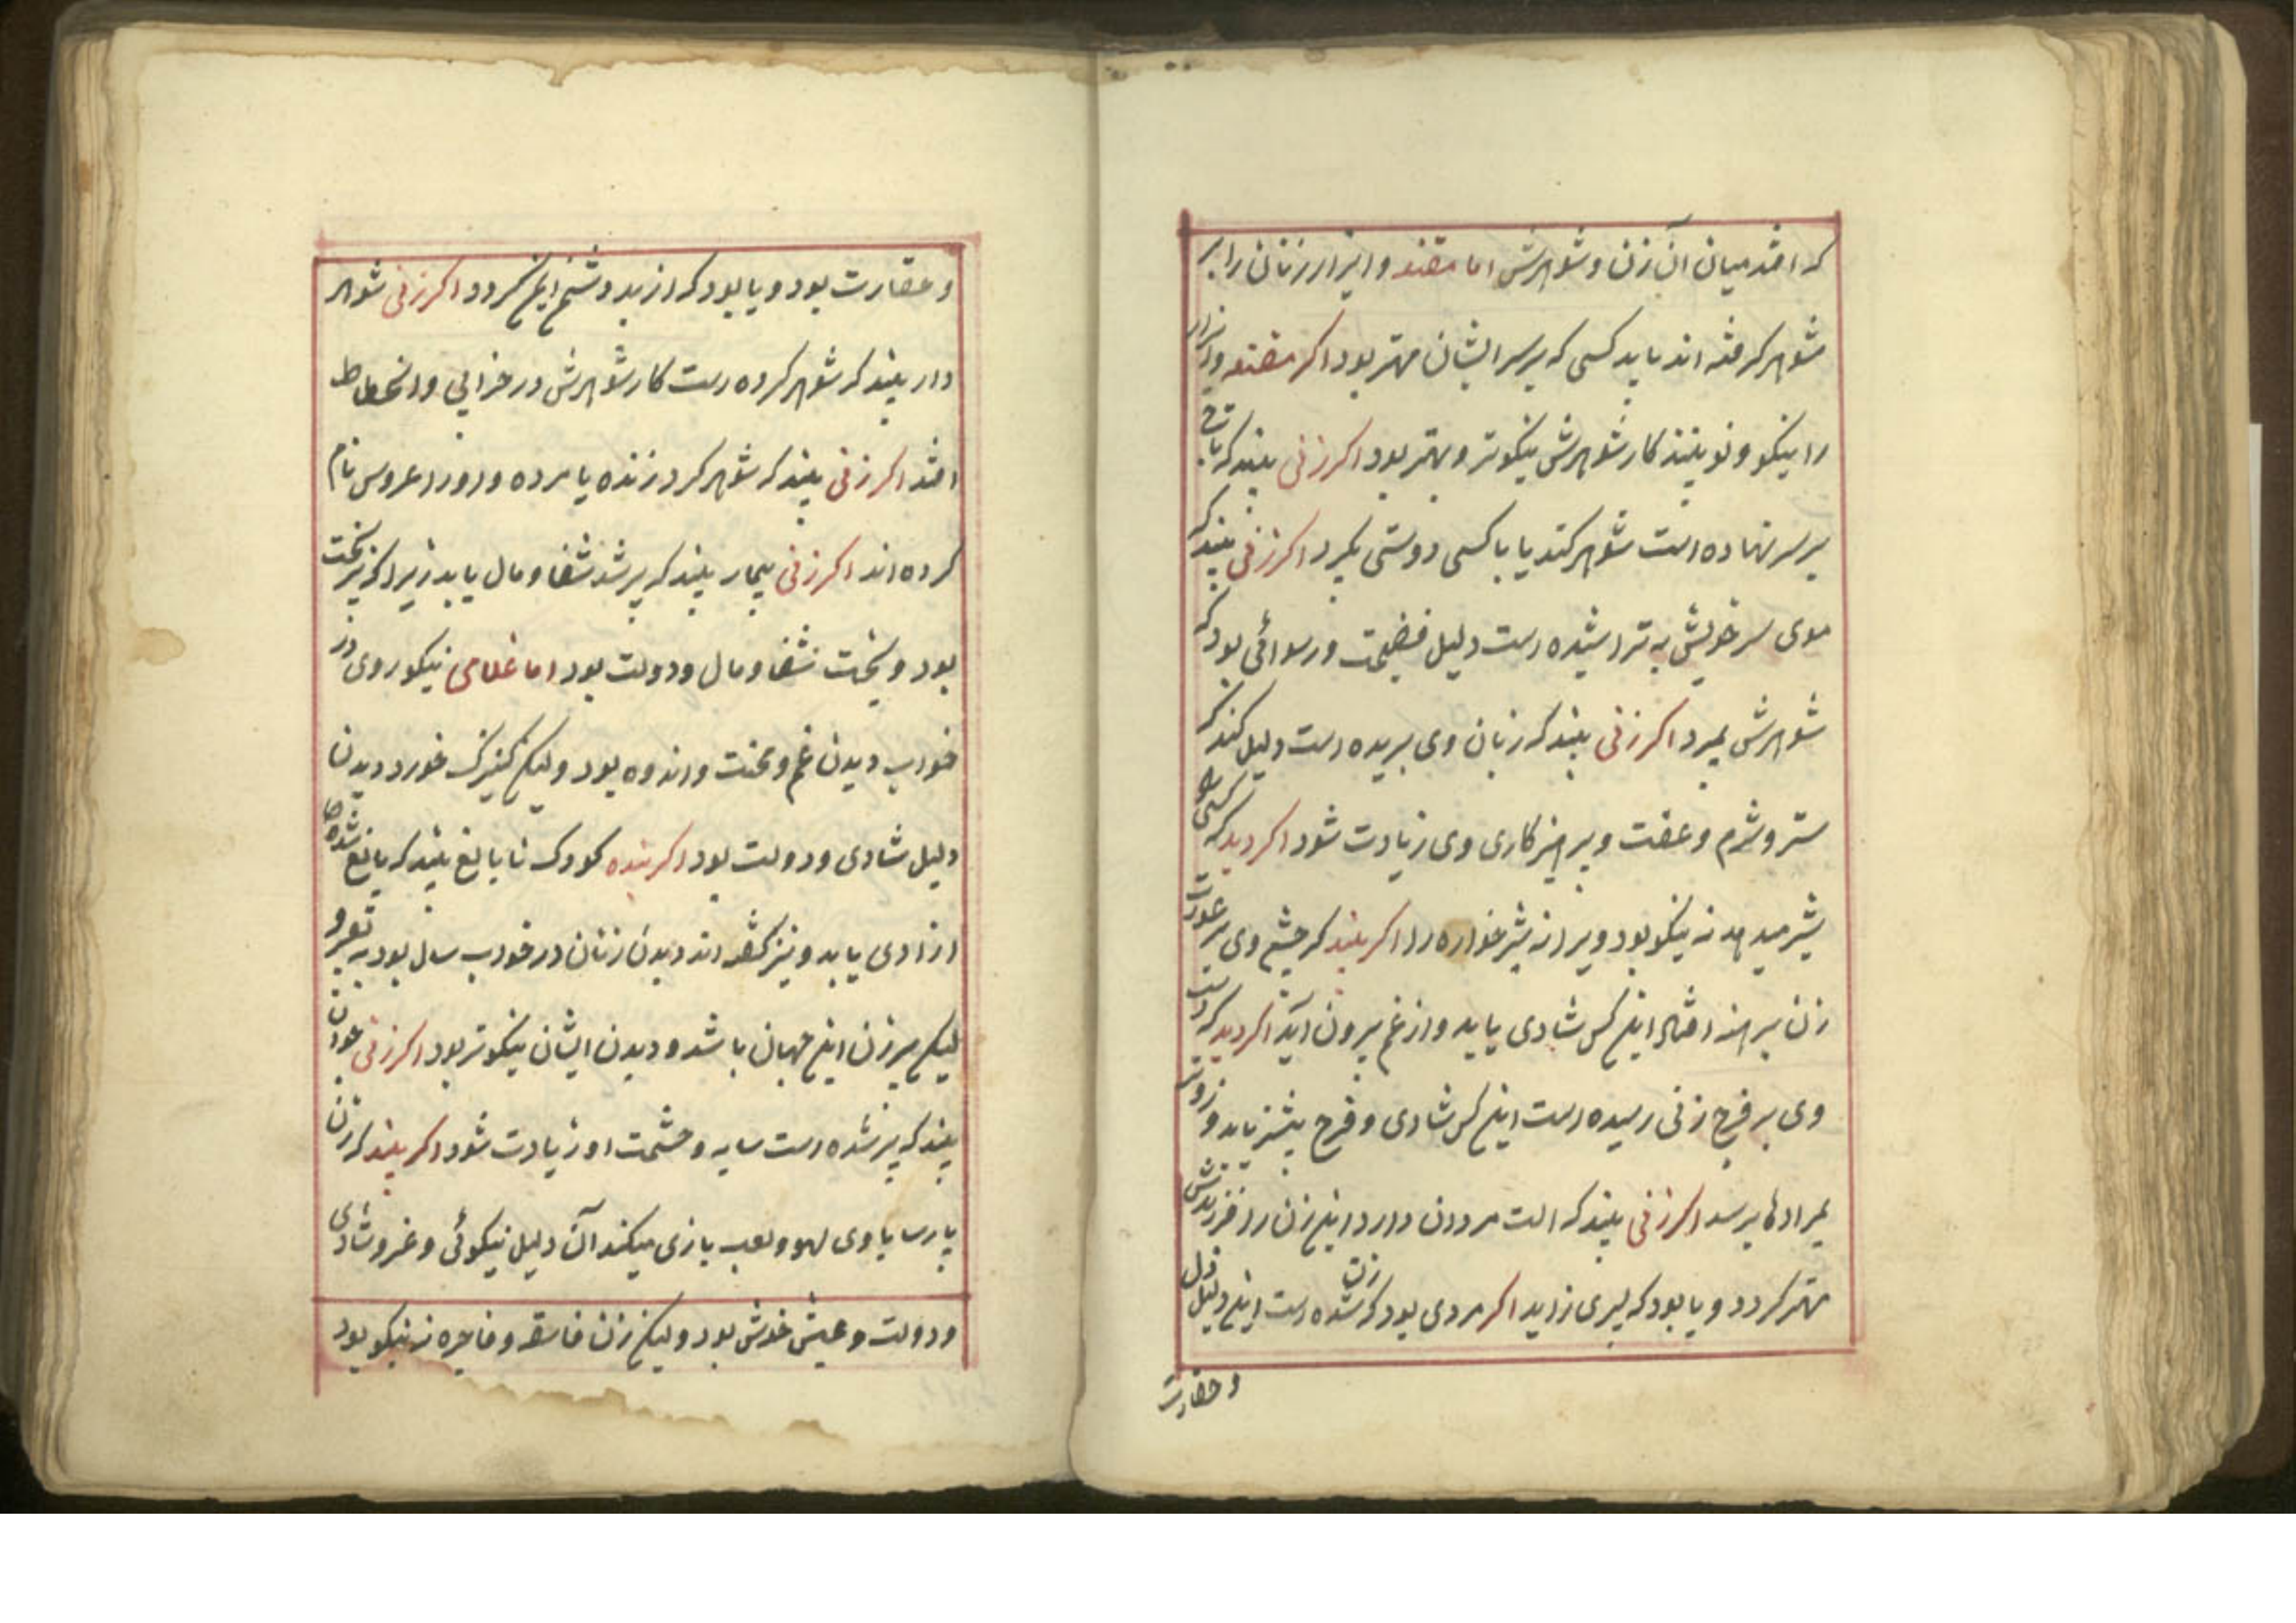 که افتد میان آن زن و شوهرش اما مقنعه و ایزار زنان را بر
شوهر گرفته اند باید کسی که بر سر ایشان مهتر بود اگر مقنعه و ایزار
را نیکو و نو بیند کار شوهرش نیکوتر و بهتر بود اگر زنی بیند که تاج
بر سر نهاده است شوهر کند یا با کسی دوستی گیرد اگر زنی بیند که
موی سر خویش به تراشیده است دلیل فضیحت و رسوائی بود که
شوهرش بمیرد اگر زنی بیند که زبان وی بریده است دلیل کند که
ستر و شرم و عفت و پرهیزکاری وی زیادت شود اگر دید که کسی را
شیر میدهد نه نیکو بود ویرا نه شیر خواره را اگر بیند که چشم وی بر عورت
زن برهنه افتاد اینکس شادی یابد و از غم بیرون آید اگر دید که دست
وی بر فرج زنی رسیده است اینکس شادی و فرح بیشتر یابد و زودتر
بمرادها برسد اگر زنی بیند که الت مردان دارد این زن را فرزندش
مهتر گردد و یا بود که پسری زاید اگر مردی بود که زن شده است این دلیل ذل
و حقارت
و حقارت بود و یا بود که از بد و شنع ایمن گردد اگر زنی شوهر
دار بیند که شوهر کرده است کار شوهرش در خرابی و انحطاط
افتد اگر زنی بیند که شوهر کرد زنده یا مرده و او را عروس نام
کرده اند اگر زنی بیمار بیند که پیر شد شفا و مال یابد زیرا که پیر بخت
بود و بخت شفا و مال و دولت بود اما غلامی نیکو روی در
خواب دیدن غم و محنت و اندوه بود ولیکن کنیزک خورد دیدن
دلیل شادی و دولت بود اگر بنده کودک نا بالغ بیند که بالغ شده
ازادی یابد و نیز گفته اند دیدن زنان در خواب سال بود به تعبیر و
لیکن پیرزن این جهان باشد و دیدن ایشان نیکوتر بود اگر زنی جوان
بیند که پیر شده است سایه و حشمت او زیادت شود اگر بیند که زن
پارسا با وی لهو و لعب بازی میکند آن دلیل نیکوئی و عز و شادی
و دولت و عیش خوش بود ولیکن زن فاسقه و فاجره نه نیکو بود